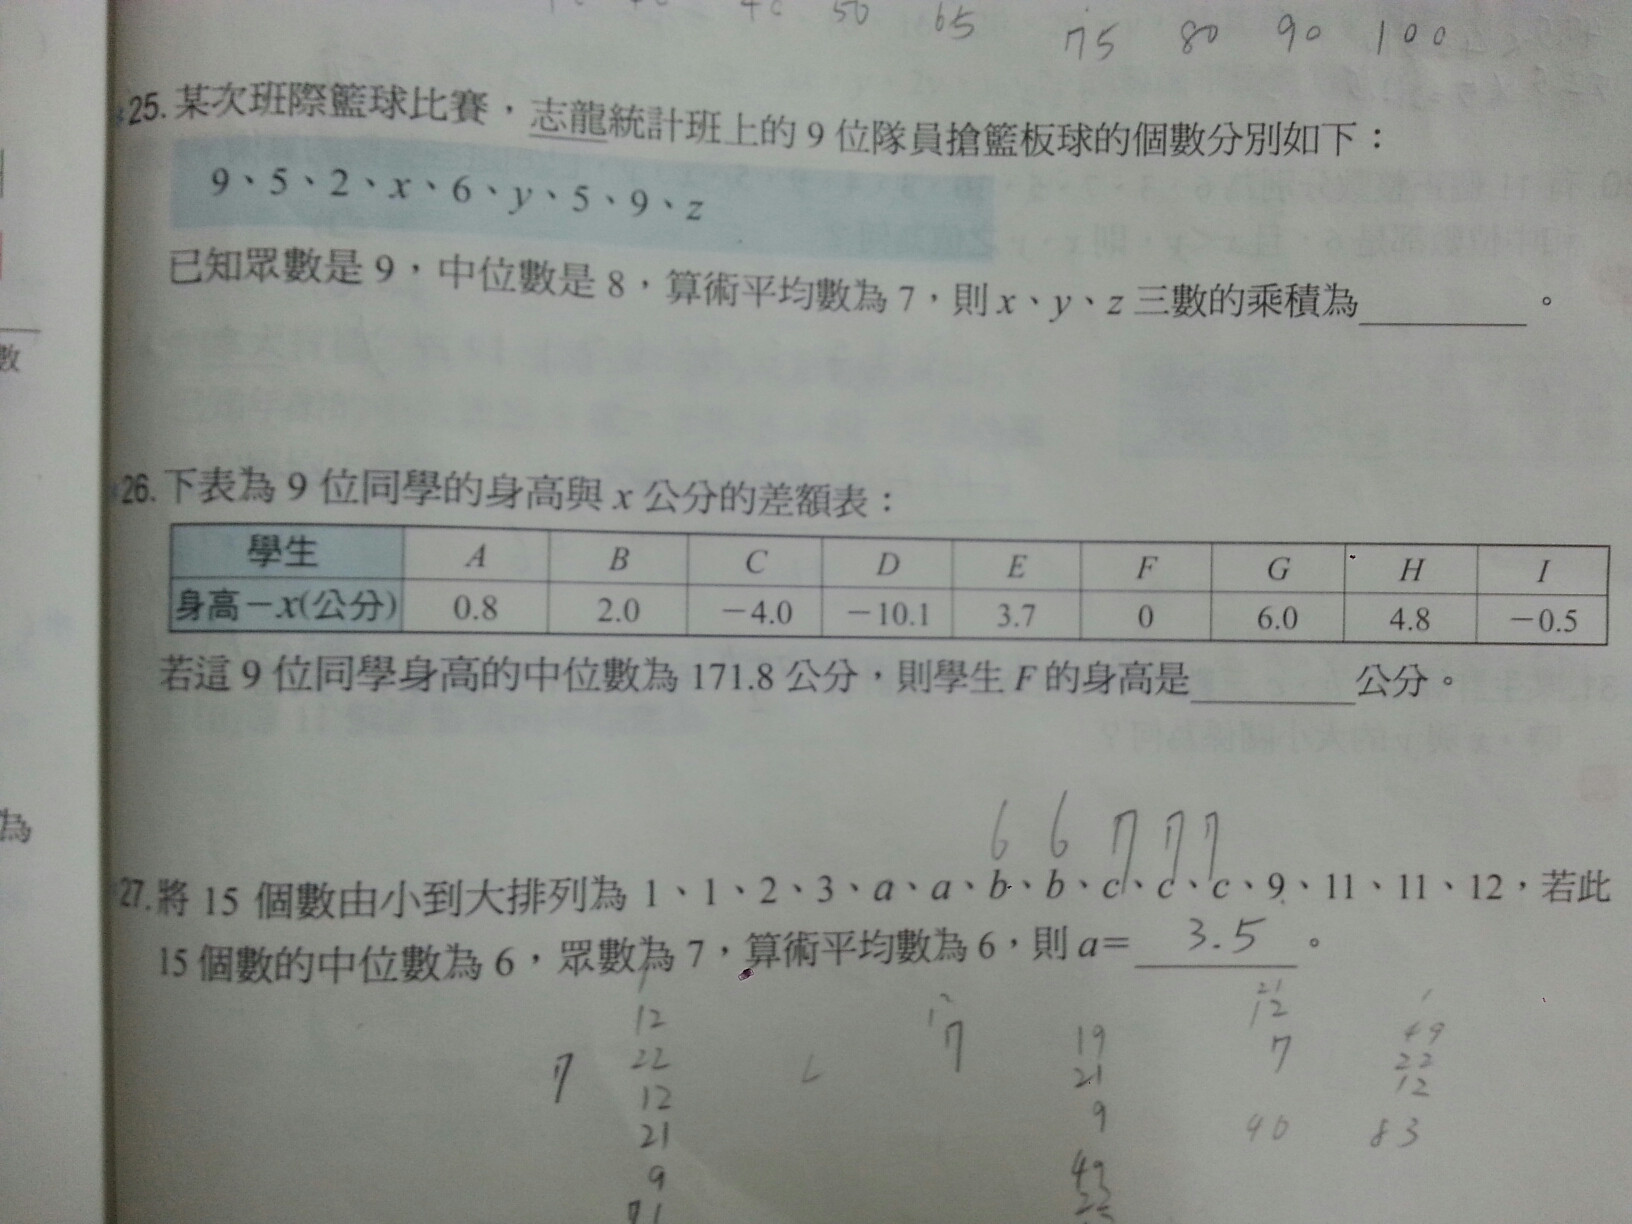 50 65 75 80 90 100
25. 某次班際籃球比賽，志龍統計班上的 9 位隊員搶籃板球的個數分別如下：
9、5、2、x、6、y、5、9、z
已知眾數是 9，中位數是 8，算術平均數為 7，則 x、y、z 三數的乘積為＿＿＿＿。
數
26. 下表為 9 位同學的身高與 x 公分的差額表：
學生 A B C D E F G H I
身高－x(公分) 0.8 2.0 －4.0 －10.1 3.7 0 6.0 4.8 －0.5
若這 9 位同學身高的中位數為 171.8 公分，則學生 F 的身高是＿＿＿＿公分。
為
6 6 7 7 7
27. 將 15 個數由小到大排列為 1、1、2、3、a、a、b、b、c、c、c、9、11、11、12，若此
15 個數的中位數為 6，眾數為 7，算術平均數為 6，則 a＝ 3.5 。
12 21 12
22 7 19 7 49
7 12 21 22
21 9 12
9 49 40 83
71